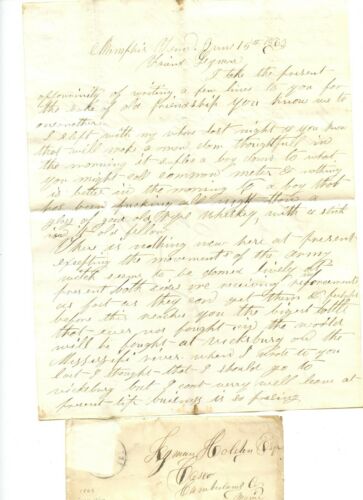 Memphis Tenn. Jun 15th 1863
Friend Lyman
I take the present
opportunity of writing a few lines to you for
the sake of old friendship you know me to
one another
I slept with my whore last night & you know
that will make a man down thoughtful in
the morning it a boy down to what
you might call common meter & nothing
is better in the morning to a boy that
has been fucking all night than a
glass of good old rype whiskey with a stick
in it old fellow
There is nothing new here at present
excepting the movements of the army
witch seems to be domed lively at
present both sides are receiving reinforcements
as fast as they can get them & perhaps
before this reaches you the bigest battle
that ever was fought in the world
will be fought at vicksburg on the
Mississippi river when I wrote to you
last I thought that I should go to
vicksburg but I cant verry well leave at
present buisness is so
Lyman Holden Esq
Otisco
Cumberland Co
Maine